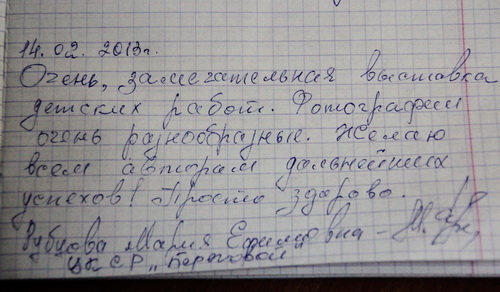 14.02.2013г.
Очень, замечательная выставка
детских работ. Фотографии
очень разнообразные. Желаю
всем авторам дальнейших
успехов! Просто здорово.
Зубцова Мария Ефимовна -
ЦКСР „Береговой"